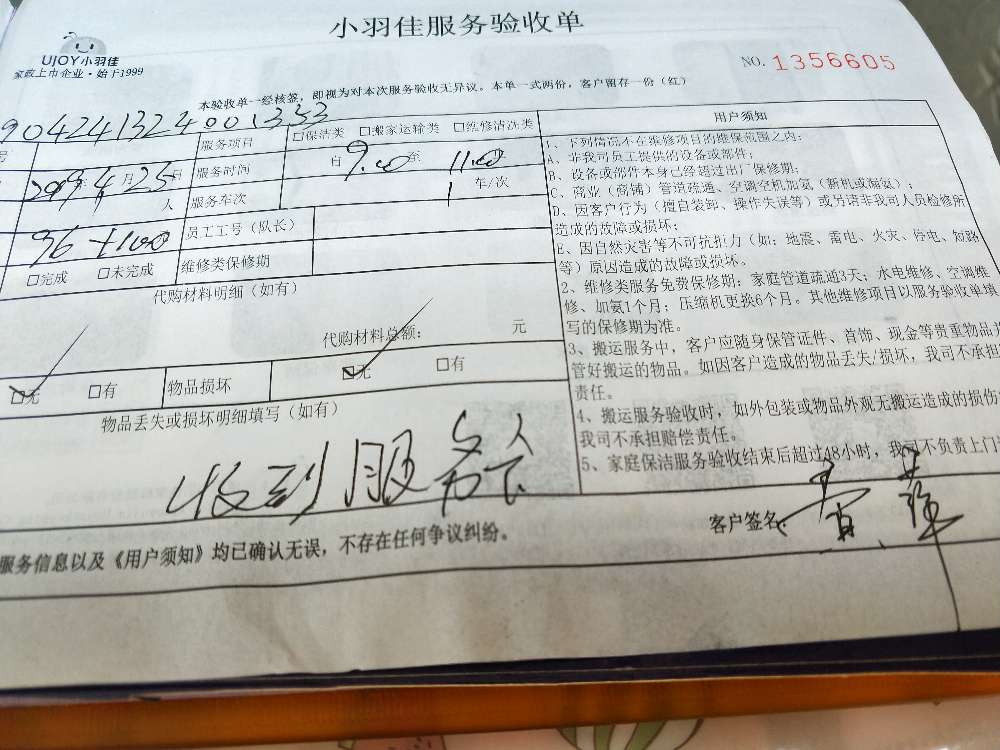 小羽佳服务验收单
UJOY小羽佳
家政上市企业·始于1999
NO. 1356605
本验收单一经核签，即视为对本次服务验收无异议。本单一式两份，客户留存一份（红）
904241324001333
服务项目 □保洁类 □搬家运输类 □维修清洗类
2019年4月25日 服务时间 自9:00至11:00
人 服务车次 1 车/次
96+100 员工工号（队长）
□完成 □未完成 维修类保修期
代购材料明细（如有）
代购材料总额： 元
☑无 □有 物品损坏 ☑无 □有
物品丢失或损坏明细填写（如有）
收到服务
服务信息以及《用户须知》均已确认无误，不存在任何争议纠纷。
客户签名
用户须知
1、下列情况不在维修项目的维保范围之内：
A、非我司员工提供的设备或部件；
B、设备或部件本身已经超过出厂保修期；
C、商业（商铺）管道疏通、空调空机加氨（新机或漏氨）；
D、因客户行为（擅自装卸、操作失误等）或另请非我司人员检修所
造成的故障或损坏；
E、因自然灾害等不可抗拒力（如：地震、雷电、火灾、停电、短路
等）原因造成的故障或损坏。
2、维修类服务免费保修期：家庭管道疏通3天；水电维修、空调维
修、加氨1个月；压缩机更换6个月。其他维修项目以服务验收单填
写的保修期为准。
3、搬运服务中，客户应随身保管证件、首饰、现金等贵重物品并
管好搬运的物品。如因客户造成的物品丢失/损坏，我司不承担
责任。
4、搬运服务验收时，如外包装或物品外观无搬运造成的损伤
我司不承担赔偿责任。
5、家庭保洁服务验收结束后超过48小时，我司不负责上门